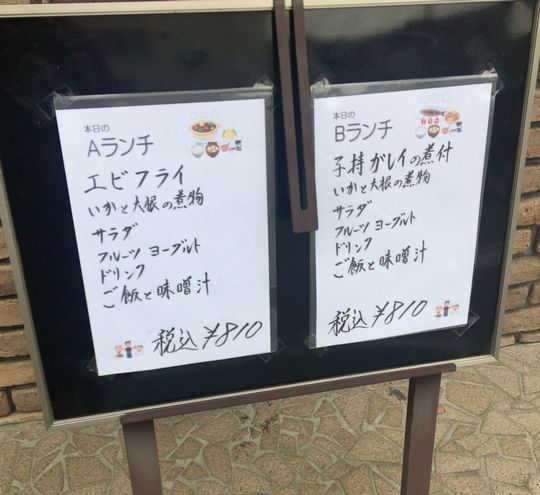 本日の
Aランチ
エビフライ
いかと大根の煮物
サラダ
フルーツ ヨーグルト
ドリンク
ご飯と味噌汁
税込 ¥810
本日の
Bランチ
子持ガレイの煮付
いかと大根の煮物
サラダ
フルーツ ヨーグルト
ドリンク
ご飯と味噌汁
税込 ¥810